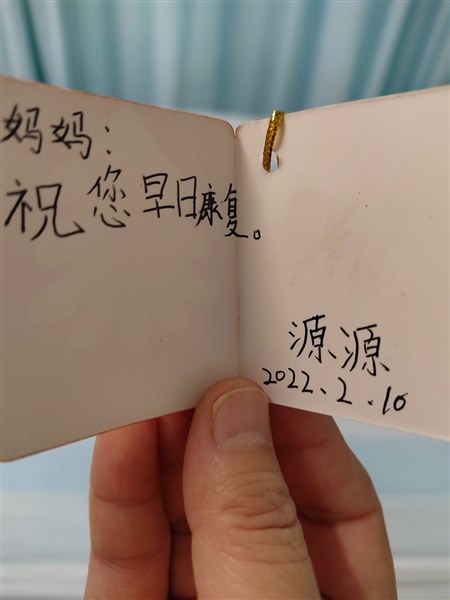 妈妈:
祝您早日康复。
源源
2022.2.10